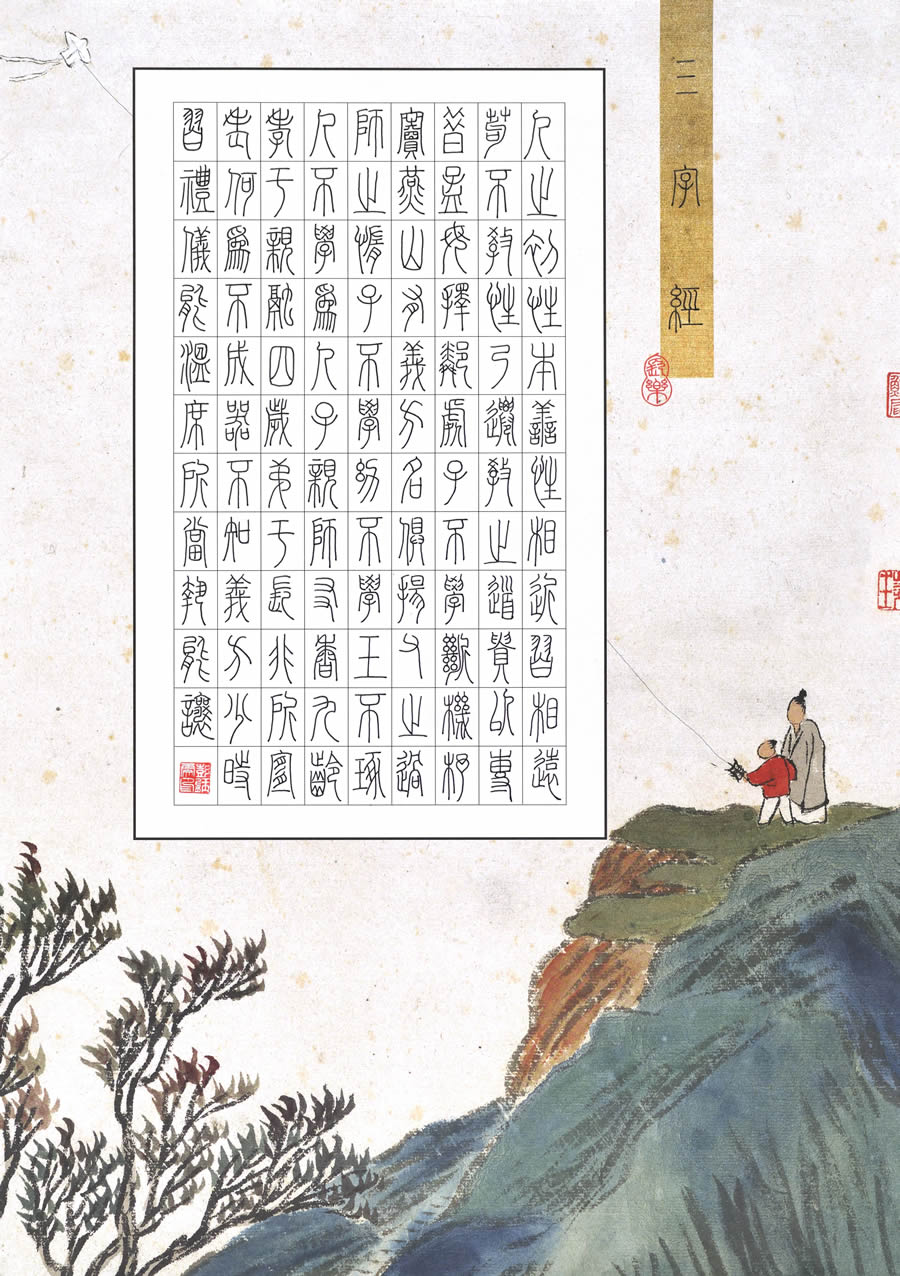 三字經
人之初性本善性相近習相遠
苟不教性乃遷教之道貴以專
昔孟母擇鄰處子不學斷機杼
竇燕山有義方名俱揚父之過
師之惰子不學幼不學玉不琢
人不學爲人子親師友香九齡
孝于親融四歲弟于長非所宜
老何爲不成器不知義方少時
習禮儀能溫席所當執能讓